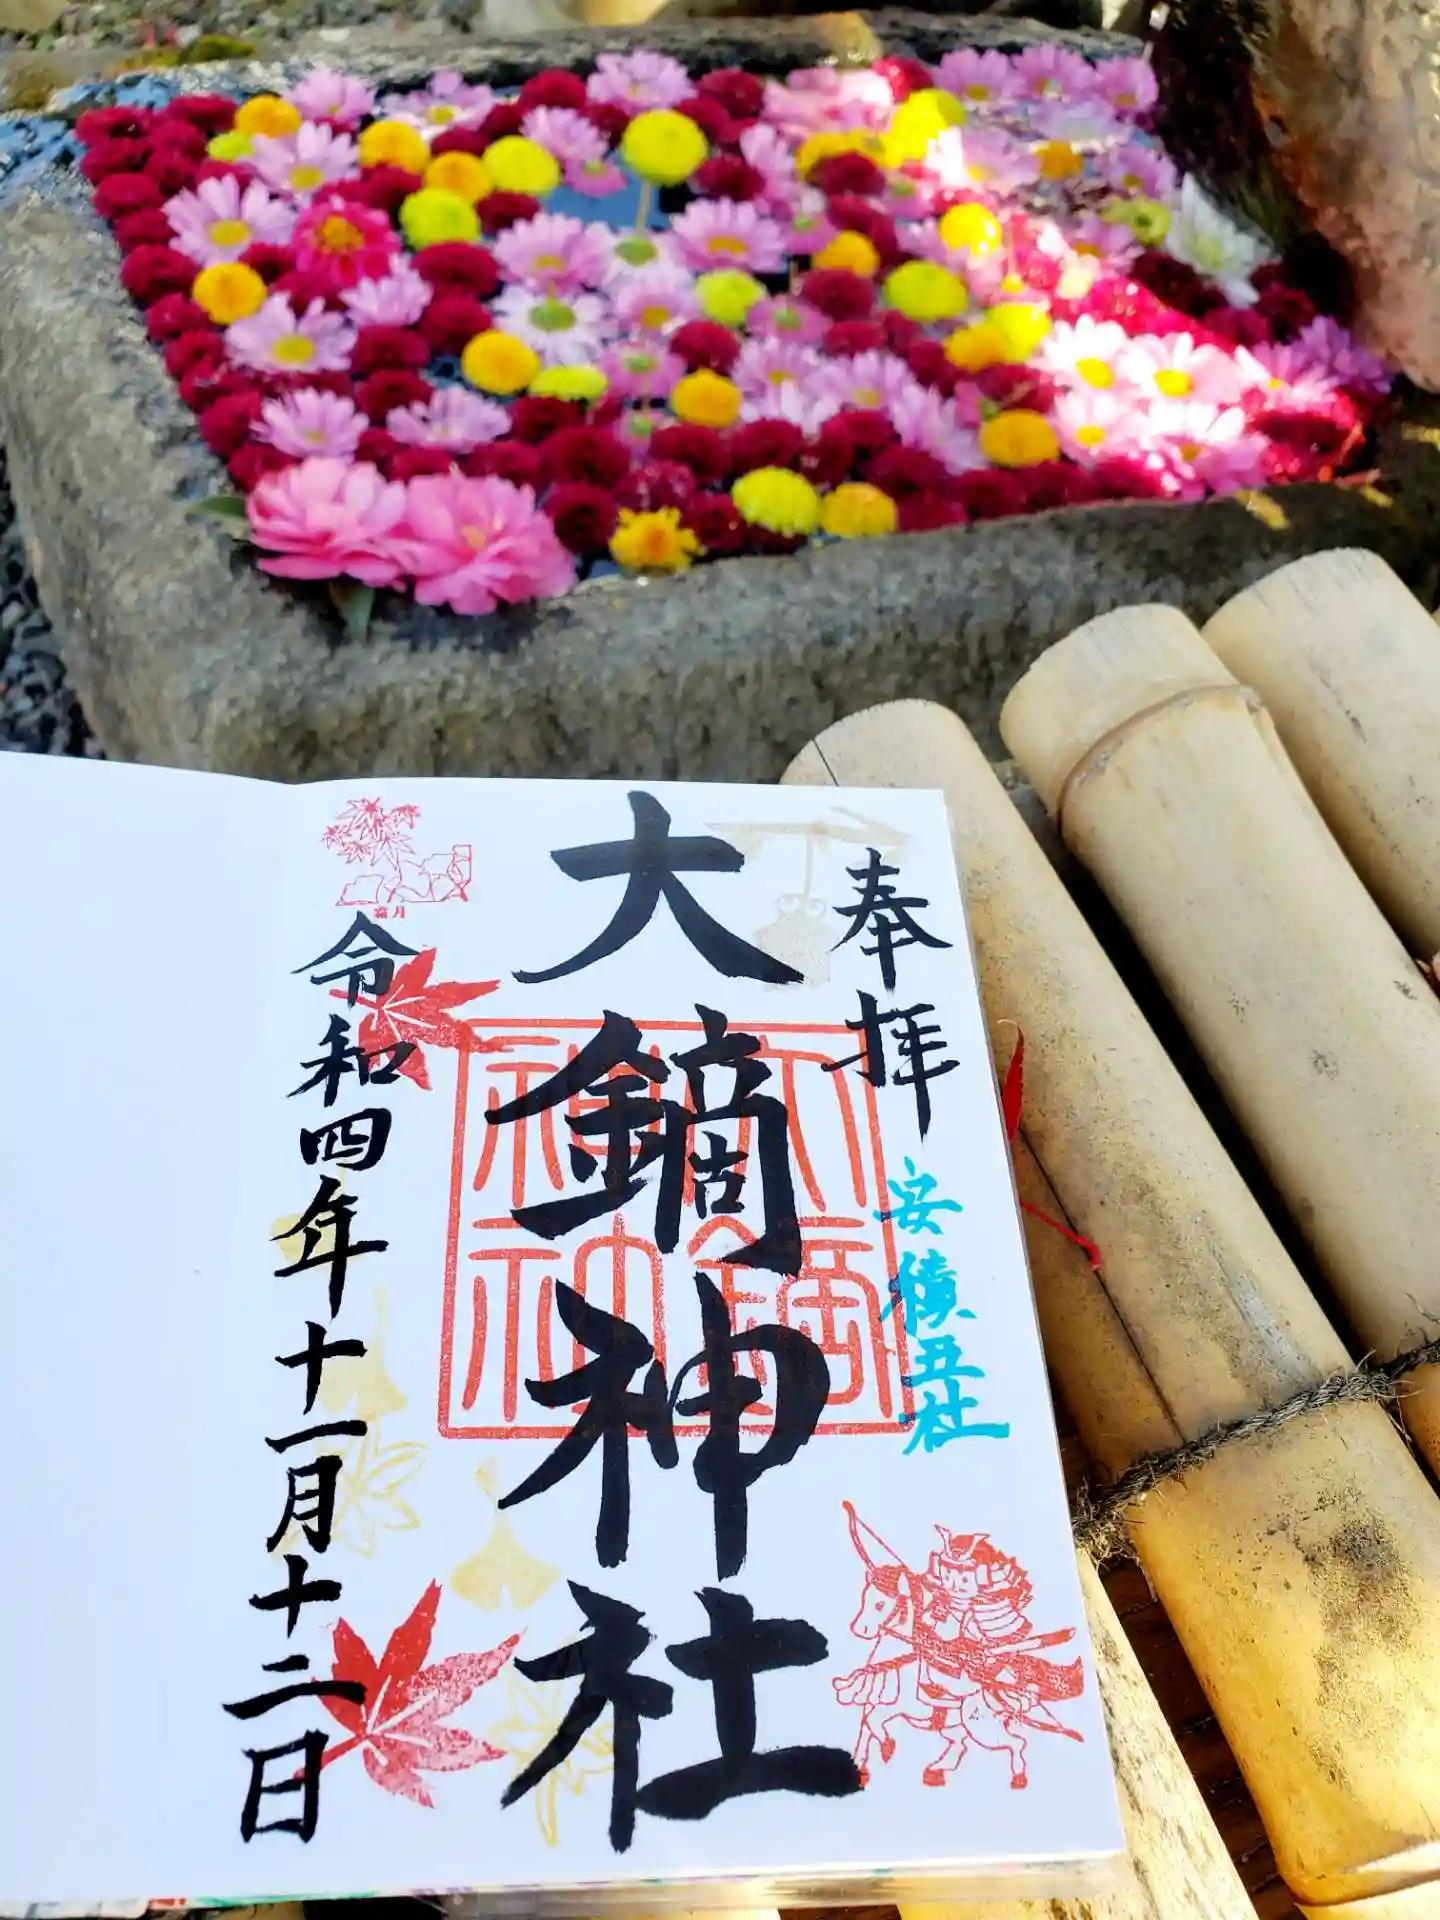 奉拝
安積五社
大鏑神社
大鏑神社
霜月
令和四年十一月十二日